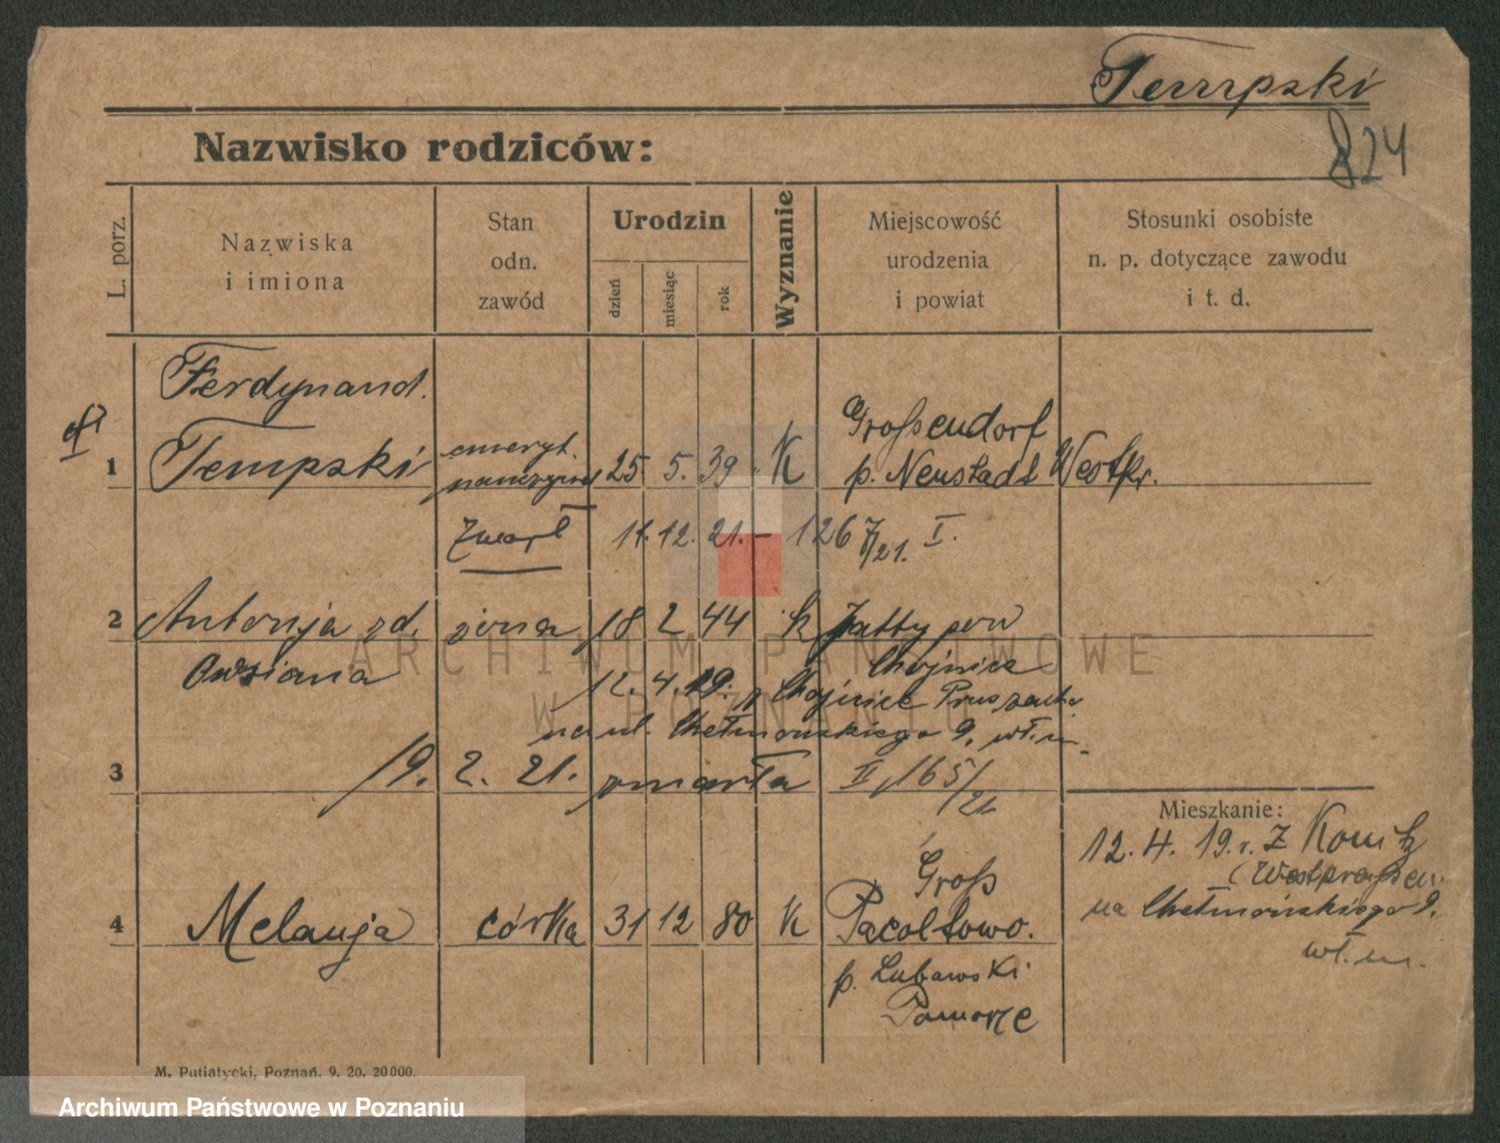 Tempski
824
Nazwisko rodziców:
L. porz.
Nazwiska
i imiona
Stan
odn.
zawód
Urodzin
dzień
miesiąc
rok
Wyznanie
Miejscowość
urodzenia
i powiat
Stosunki osobiste
n. p. dotyczące zawodu
i t. d.
Ferdynand.
1 Tempski emeryt. 25. 5. 39 K Großendorf
p. Neustadt Westpr.
Zmarł 11. 12. 21. – 1267/21. I.
2 Antonja zd. żona 18 2 44 k pow
Owsiana Chojnice
12. 4. 19. z Chojnice
na ul. Chełmońskiego 9, wł. m.
3 19. 2. 21. zmarła II 165/21
Mieszkanie:
12. 4. 19. r. z Konitz
(Westpreußen
na Chełmońskiego 9.
wł. m.
4 Melanja córka 31 12 80 K Groß
Pacoltowo.
p. Lubawski
Pomorze
M. Putiatycki, Poznań. 9. 20. 20000.
ARCHIWUM PAŃSTWOWE
W POZNANIU
Archiwum Państwowe w Poznaniu